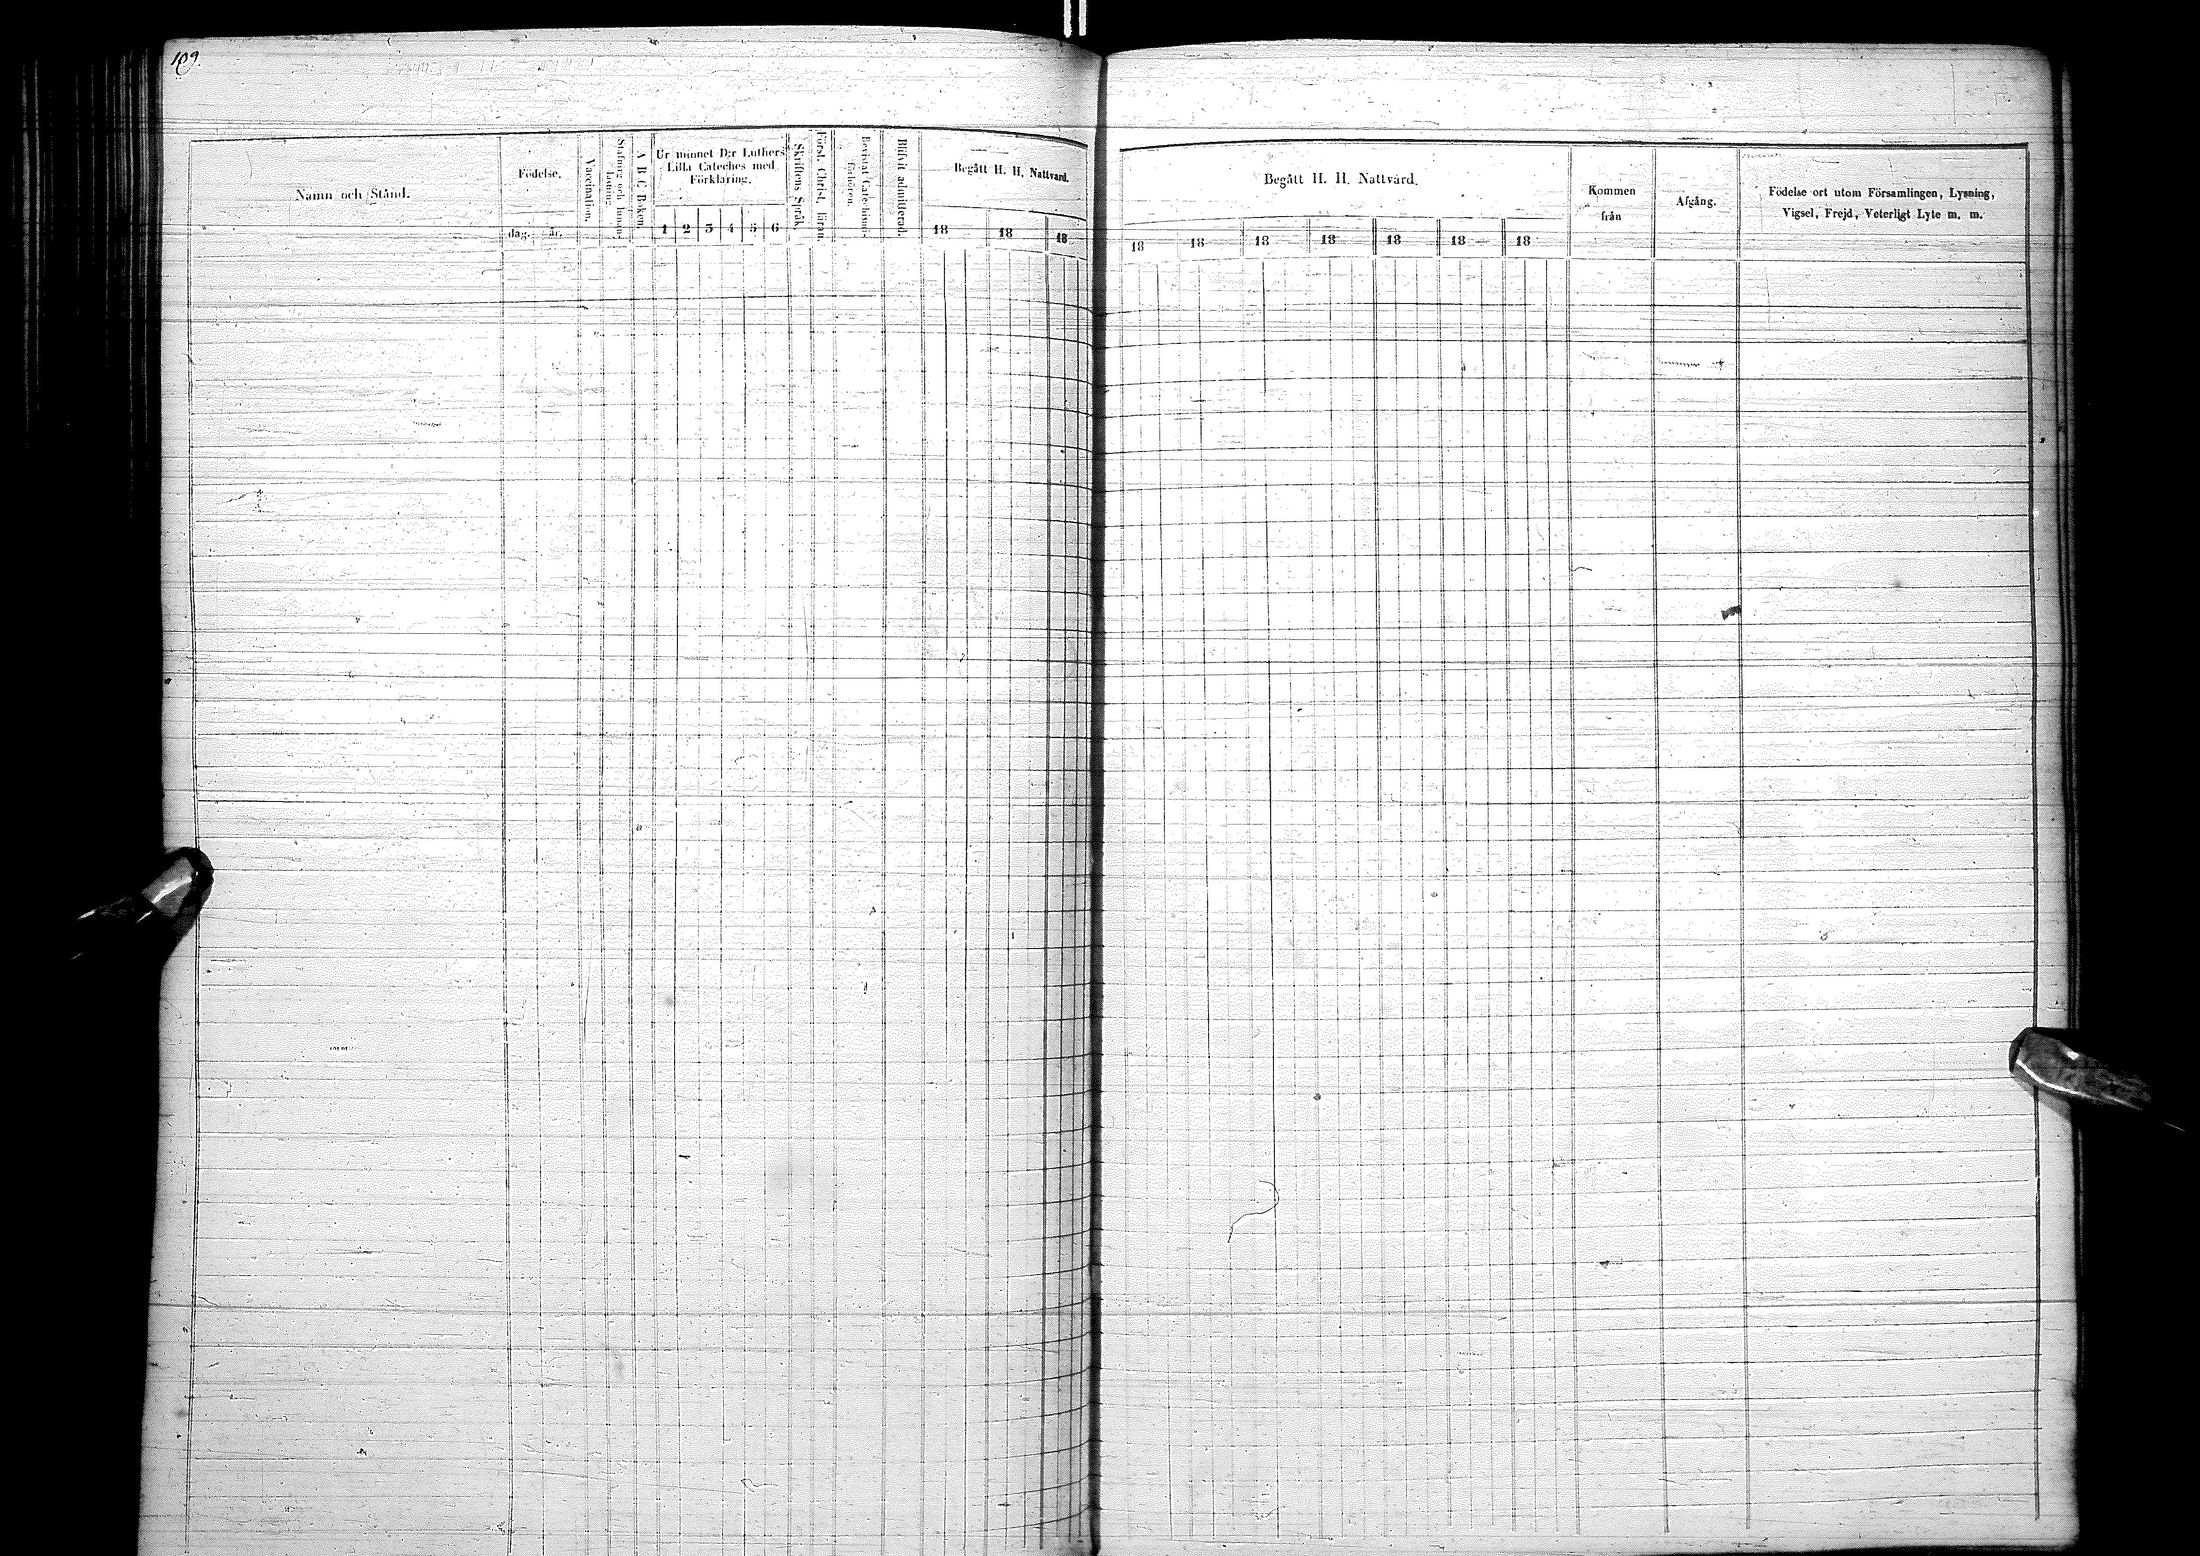 109.
Namn och Stånd.
Födelse.
dag. år.
Vaccination.
Stafning och Innanläsning.
A B C Boken.
Ur minnet D:r Luthers
Lilla Cateches med
Förklaring.
1 2 3 4 5 6
Skriftens Språk.
Först. Christ. läran.
Bevistat Catechismi-
förhören.
Blifvit admitterad.
Begått H. H. Nattvard.
18 18 18
Begått H. H. Nattvard.
18 18 18 18 18 18 18
Kommen
från
Afgång.
Födelse ort utom Församlingen, Lysning,
Vigsel, Frejd, Veterligt Lyte m. m.